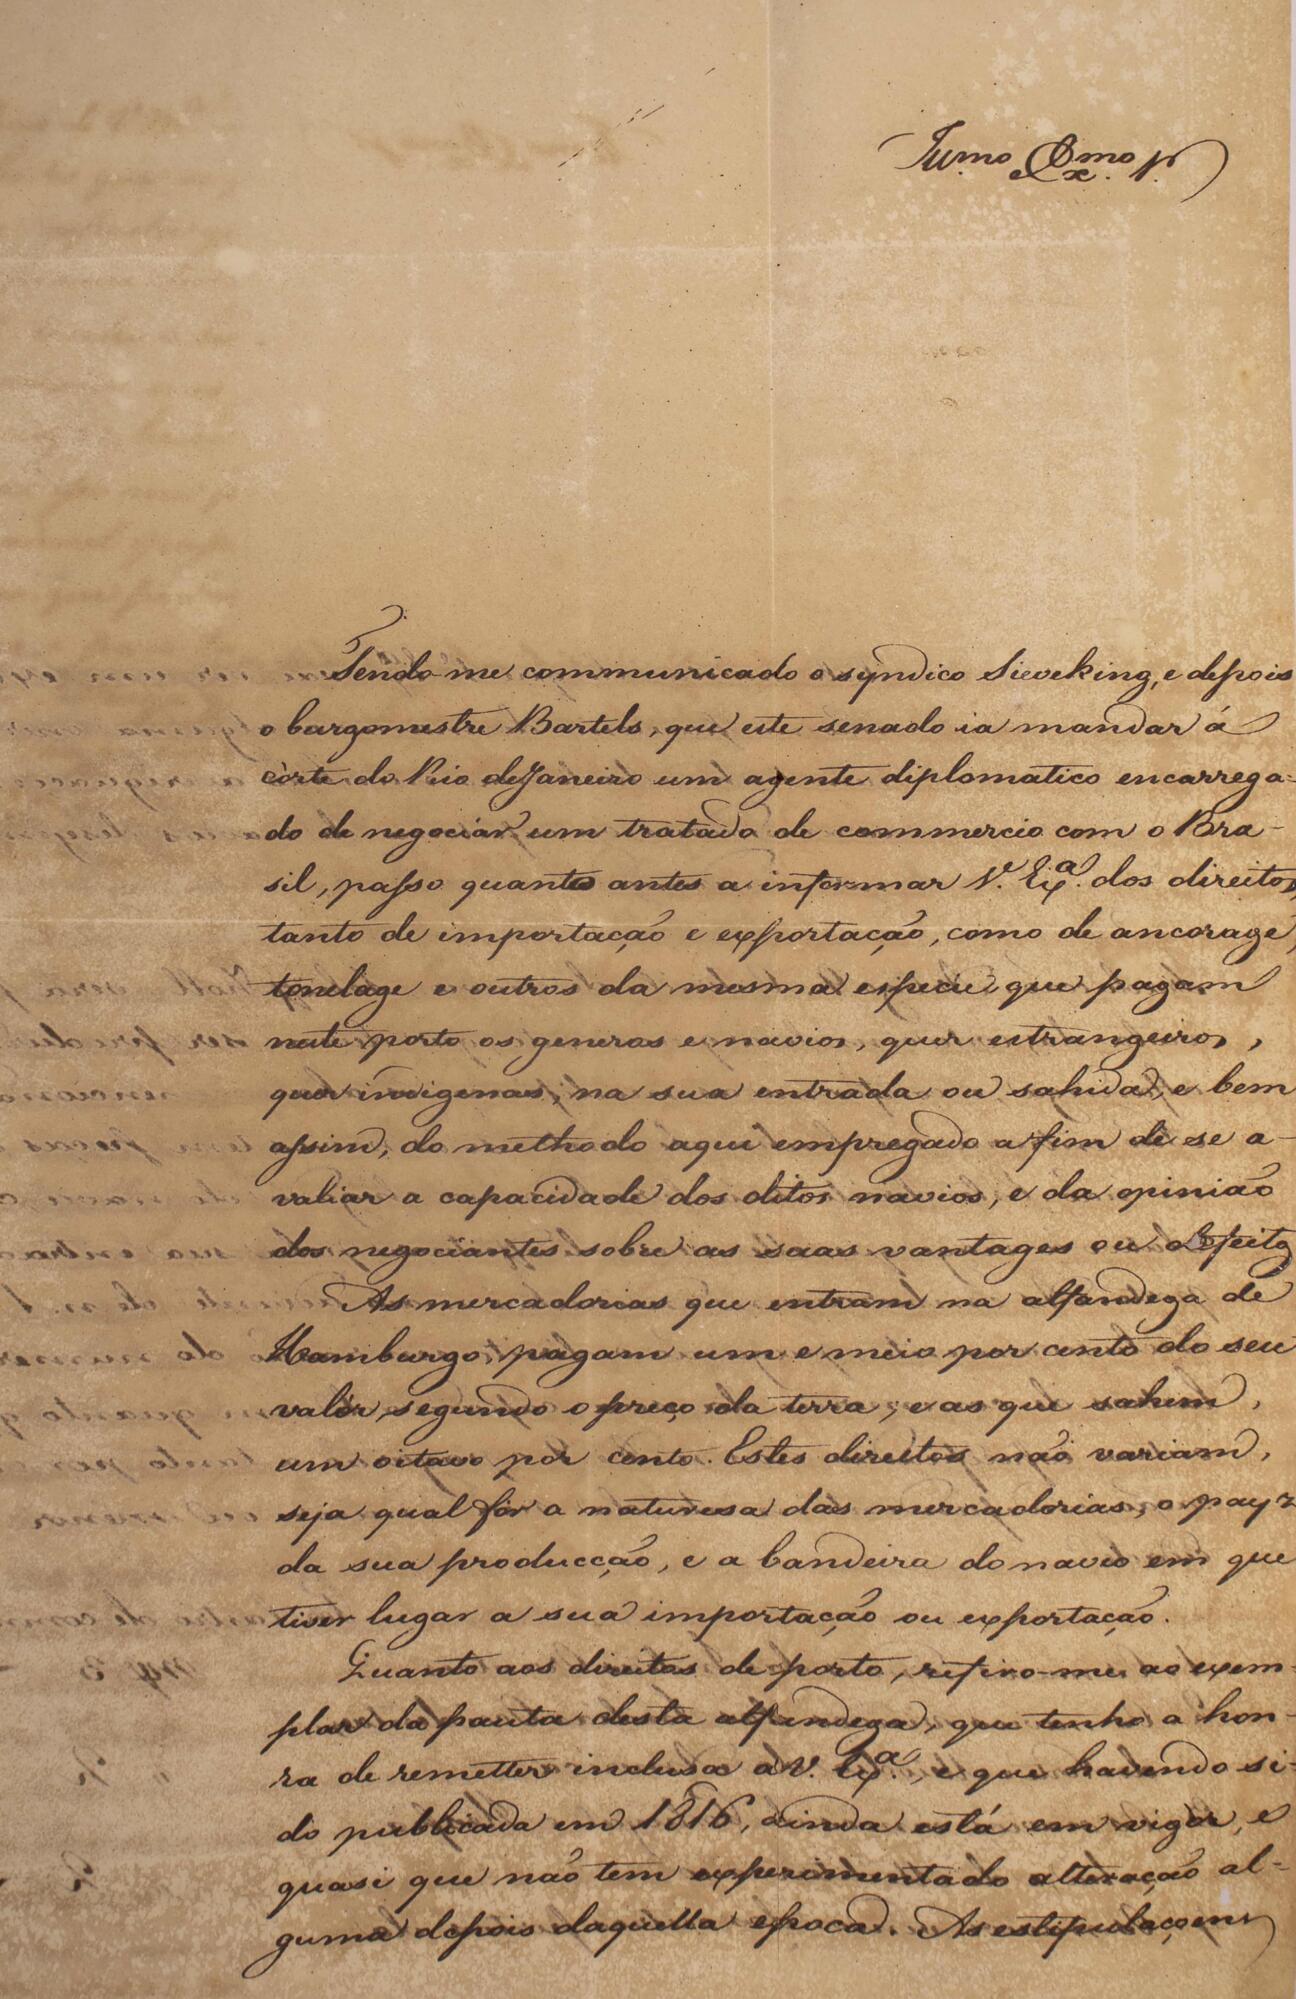 Illmo Exmo Sr
Tendo-me communicado o syndico Sieveking, e depois
o burgomestre Bartels, que este senado ia mandar á
côrte do Rio de Janeiro um agente diplomatico encarrega-
do de negociar um tratado de commercio com o Bra-
sil, passo quanto antes a informar V. Exa. dos direitos,
tanto de importação e exportação, como de ancorage,
tonelage e outros da mesma especie, que pagam
neste porto os generos e navios, quer estrangeiros,
quer indigenas, na sua entrada ou sahida, e bem
assim, do methodo aqui empregado a fim de se a-
valiar a capacidade dos ditos navios, e da opinião
dos negociantes sobre as suas vantages ou
As mercadorias que entram na alfandega de
Hamburgo, pagam um e meio por cento do seu
valôr, segundo o preço da terra; e as que sahem,
um oitavo por cento. Estes direitos não variam,
seja qual fôr a naturesa das mercadorias, o payz
da sua producção, e a bandeira do navio em que
tiver lugar a sua importação ou exportação.
Quanto aos direitos de porto, refiro-me ao exem-
plar da pauta desta alfandega, que tenho a hon-
ra de remetter inclusa a V. Exa., e que havendo si-
do publicada em 1816, ainda está em vigor, e
quasi que não tem experimentado alteração al-
guma depois daquella epoca. As estipulaçoens